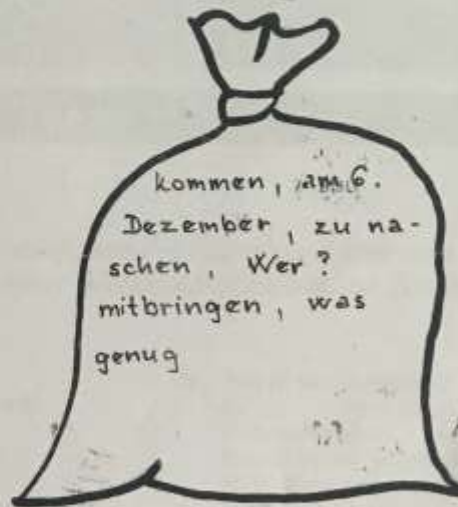 kommen, am 6.
Dezember, zu na-
schen, Wer?
mitbringen, was
genug